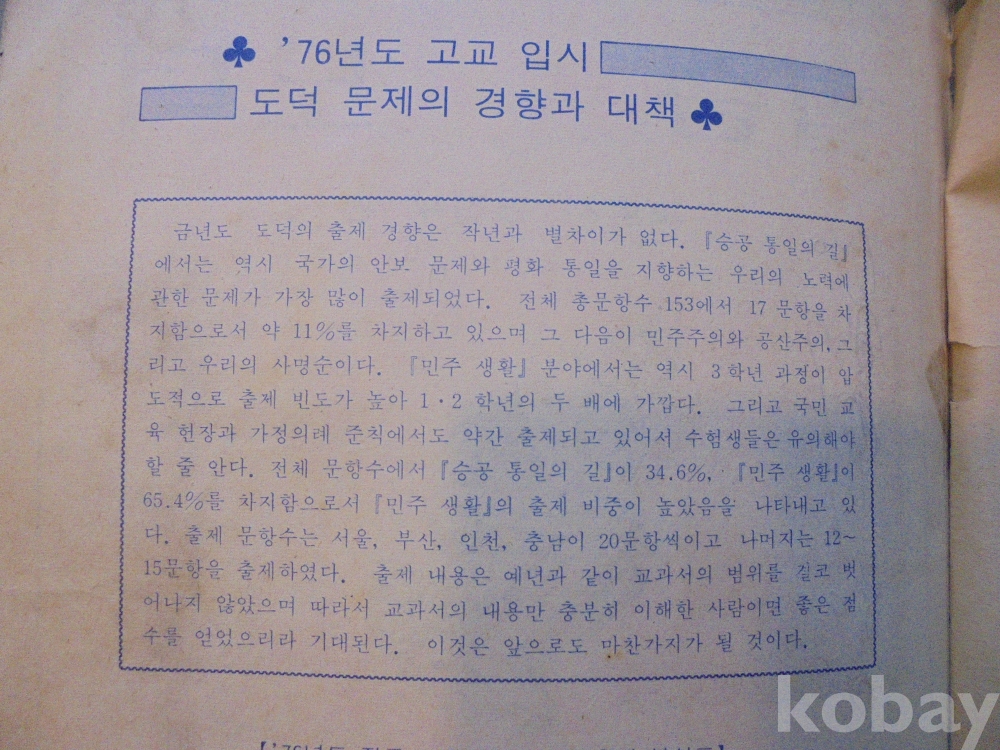 ♣ '76년도 고교 입시
도덕 문제의 경향과 대책 ♣
금년도 도덕의 출제 경향은 작년과 별차이가 없다. 『승공 통일의 길』
에서는 역시 국가의 안보 문제와 평화 통일을 지향하는 우리의 노력에
관한 문제가 가장 많이 출제되었다. 전체 총문항수 153에서 17 문항을 차
지함으로서 약 11%를 차지하고 있으며 그 다음이 민주주의와 공산주의, 그
리고 우리의 사명순이다. 『민주 생활』 분야에서는 역시 3학년 과정이 압
도적으로 출제 빈도가 높아 1·2 학년의 두 배에 가깝다. 그리고 국민 교
육 헌장과 가정의례 준칙에서도 약간 출제되고 있어서 수험생들은 유의해야
할 줄 안다. 전체 문항수에서 『승공 통일의 길』이 34.6%, 『민주 생활』이
65.4%를 차지함으로서 『민주 생활』의 출제 비중이 높았음을 나타내고 있
다. 출제 문항수는 서울, 부산, 인천, 충남이 20문항씩이고 나머지는 12~
15문항을 출제하였다. 출제 내용은 예년과 같이 교과서의 범위를 결코 벗
어나지 않았으며 따라서 교과서의 내용만 충분히 이해한 사람이면 좋은 점
수를 얻었으리라 기대된다. 이것은 앞으로도 마찬가지가 될 것이다.
kobay